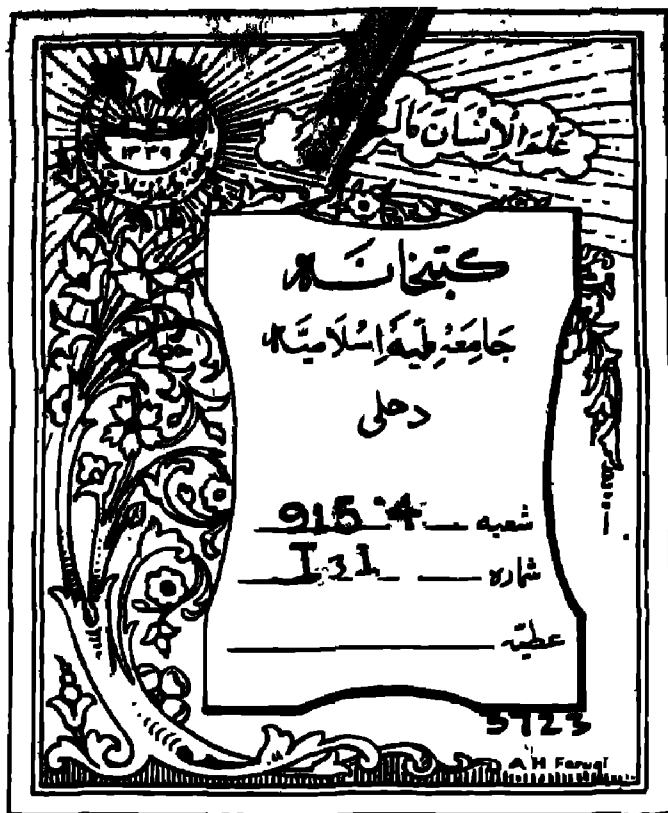 ١٣٣٩
عَلَّمَ الْاِنْسَانَ مَا لَمْ
کتبخانہ
جَامِعَۂ مِلّیَۂ اِسْلَامِیَّہ
دھلی
شعبہ 915.4
شمارہ I31
عطیّہ
5723
A H Faruqi